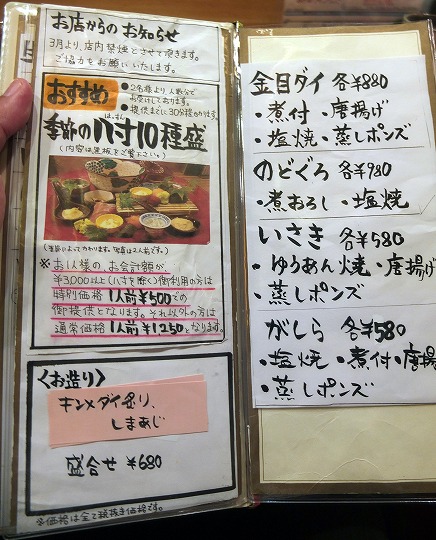 お店からの お知らせ
3月より、店内禁煙とさせて頂きます。
ご協力をお願いいたします。
おすすめ
・2名様より人数分で
お受けしております。
・提供までに30分程かかります。
季節の八寸10種盛
はっすん
(内容は黒板をご覧下さい。)
(季節によってかわります。写真は2人前です。)
※お1人様の お会計額が、
¥3,000以上(八寸を除く)御利用の方は
特別価格 1人前¥500での
御提供となります。それ以外の方は
通常価格 1人前¥1250となります。
〈お造り〉
キンメダイ炙り、
しまあじ
盛合せ ¥680
※価格は全て税抜き価格です。
金目ダイ 各¥880
・煮付 ・唐揚げ
・塩焼 ・蒸しポンズ
のどぐろ 各¥980
・煮おろし ・塩焼
いさき 各¥580
・ゆうあん焼 ・唐揚げ
・蒸しポンズ
がしら 各¥580
・塩焼 ・煮付 ・唐揚
・蒸しポンズ